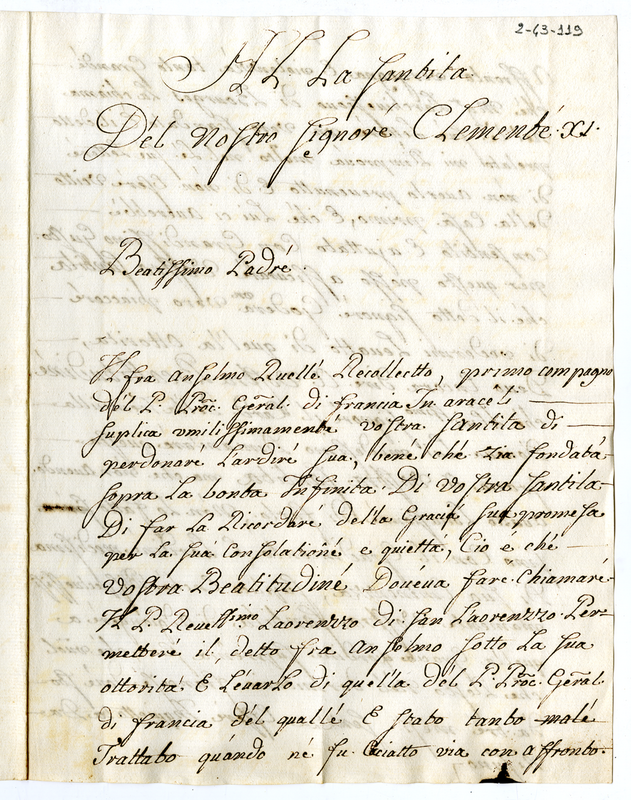 2-43-119
Al La santita
Dél nostro signoré Clementé. XI.
Beatissimo Padré.
Il fra Anselmo Ruellé Recollectto, primo compagno
dél P. Proc. Geñral. di francia In aracéli
suplica vmilissimamenté vostra santita di
perdonaré Lardiré sua, bené ché sia fondata
sopra La bonta Infinita. Di vostra santita
Di far La Ricordaré délla Gracia sua promesa
per La sua Consolationé e quietta, Cio é ché
vostra Beatitudiné Douéua faré Chiamaré
Il P. Reuessimo Laorenzzo di san Laorenzzo. Per=
metteré il detto fra Anselmo sotto La sua
ottoritá. E Léuarlo di quella dél P. Proc. Geñral.
di francia dél quallé É stato tanto malé
Trattato quándo né fu Caciatto via con affronto.